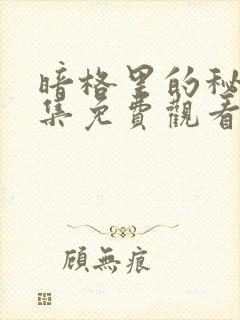 暗格里的秘
集免費觀看
顧無痕